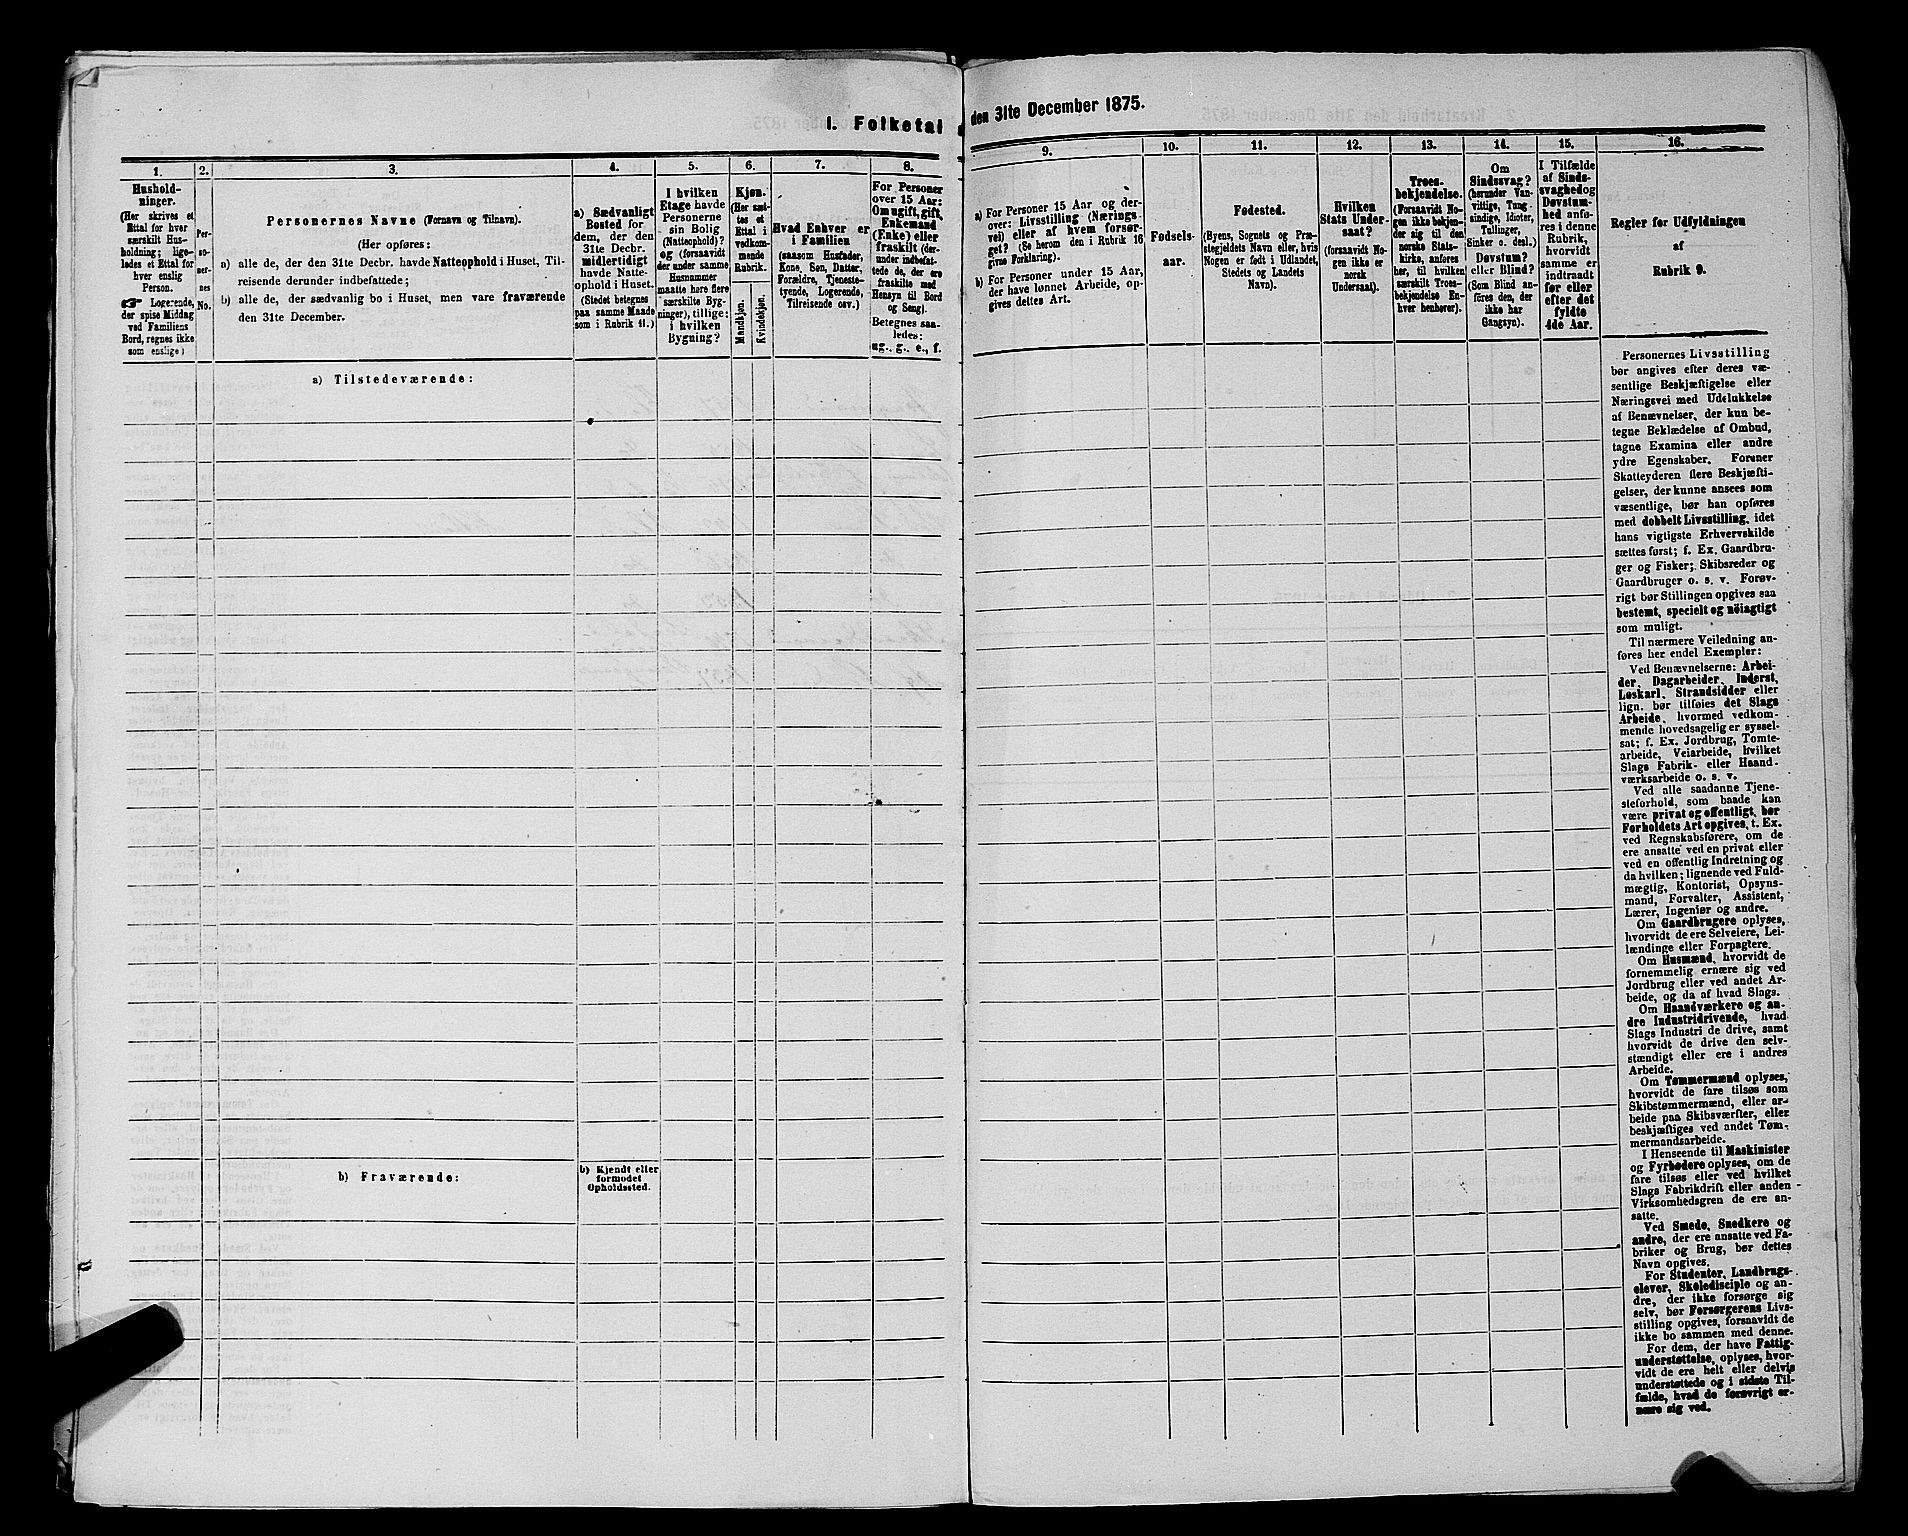 I. Folketal
den 31te December 1875.
1.
Hushold-
ninger.
(Her skrives et
Ettal for hver
særskilt Hus-
holdning; lige-
ledes et Ettal for
hver enslig
Person.
☞ Logerende,
der spise Middag
ved Familiens
Bord, regnes ikke
som enslige)
2.
Per-
so-
ner-
nes
No.
3.
Personernes Navne (Fornavn og Tilnavn).
(Her opføres:
a) alle de, der den 31te Decbr. havde Natteophold i Huset, Til-
reisende derunder indbefattede;
b) alle de, der sædvanlig bo i Huset, men vare fraværende
den 31te December.
4.
a) Sædvanligt
Bosted for
dem, der den
31te Decbr.
midlertidigt
havde Natte-
ophold i Huset.
(Stedet betegnes
paa samme Maade
som i Rubrik 11.)
5.
I hvilken
Etage havde
Personerne
sin Bolig
(Natteophold)?
og (forsaavidt
der under samme
Husnummer
maatte høre flere
særskilte Byg-
ninger), tillige:
i hvilken
Bygning?
6.
Kjøn.
(Her sæt-
tes et
Ettal i
vedkom-
mende
Rubrik.
Mandkjøn.
Kvindekjøn.
7.
Hvad Enhver er
i Familien
(saasom Husfader,
Kone, Søn, Datter,
Forældre, Tjeneste-
tyende, Logerende,
Tilreisende osv.)
8.
For Personer
over 15 Aar:
Om ugift, gift,
Enkemand
(Enke) eller
fraskilt (der-
under indbefat-
tede de, der ere
fraskilte med
Hensyn til Bord
og Seng).
Betegnes saa-
ledes:
ug., g., e., f.
a) Tilstedeværende:
b) Fraværende:
b) Kjendt eller
formodet
Opholdssted.
9.
a) For Personer 15 Aar og der-
over: Livsstilling (Nærings-
vei) eller af hvem forsør-
get? (Se herom den i Rubrik 16
givne Forklaring).
b) For Personer under 15 Aar,
der have lønnet Arbeide, op-
gives dettes Art.
10.
Fødsels-
aar.
11.
Fødested.
(Byens, Sognets og Præ-
stegjeldets Navn eller, hvis
Nogen er født i Udlandet,
Stedets og Landets
Navn).
12.
Hvilken
Stats Under-
saat?
(forsaavidt No-
gen ikke er
norsk
Undersaat).
13.
Troes-
bekjendelse.
(Forsaavidt No-
gen ikke bekjen-
der sig til den
norske Stats-
kirke, anføres
her, til hvilken
særskilt Troes-
bekjendelse En-
hver henhører).
14.
Om
Sindssvag?
(herunder Van-
vittige, Tung-
sindige, Idioter,
Tullinger,
Sinker o. desl.)
Døvstum?
eller Blind?
(Som Blind an-
føres den, der
ikke har
Gangsyn).
15.
I Tilfælde
af Sinds-
svaghed og
Døvstum-
hed anfø-
res i denne
Rubrik,
hvorvidt
samme er
indtraadt
før eller
efter det
fyldte
4de Aar.
16.
Regler for Udfyldningen
af
Rubrik 9.
Personernes Livsstilling
bør angives efter deres væ-
sentlige Beskjæftigelse eller
Næringsvei med Udelukkelse
af Benævnelser, der kun be-
tegne Beklædelse af Ombud,
tagne Examina eller andre
ydre Egenskaber. Forener
Skatteyderen flere Beskjæfti-
gelser, der kunne ansees som
væsentlige, bør han opføres
med dobbelt Livsstilling, idet
hans vigtigste Erhvervskilde
sættes først; f. Ex. Gaardbru-
ger og Fisker; Skibsreder og
Gaardbruger o. s. v. Forøv-
rigt bør Stillingen opgives saa
bestemt, specielt og nöiagtigt
som muligt.
Til nærmere Veiledning an-
føres her endel Exempler:
Ved Benævnelserne: Arbei-
der, Dagarbeider, Inderst,
Løskarl, Strandsidder eller
lign. bør tilføies det Slags
Arbeide, hvormed vedkom-
mende hovedsagelig er syssel-
sat; f. Ex. Jordbrug, Tomte-
arbeide, Veiarbeide, hvilket
Slags Fabrik- eller Haand-
værksarbeide o. s. v.
Ved alle saadanne Tjene-
steforhold, som baade kan
være privat og offentligt, bør
Forholdets Art opgives, t. Ex.
ved Regnskabsførere, om de
ere ansatte ved en privat eller
ved en offentlig Indretning og
da hvilken; lignende ved Fuld-
mægtig, Kontorist, Opsyns-
mand, Forvalter, Assistent,
Lærer, Ingeniør og andre.
Om Gaardbrugere oplyses,
hvorvidt de ere Selveiere, Lei-
lændinge eller Forpagtere.
Om Husmænd, hvorvidt de
fornemmelig ernære sig ved
Jordbrug eller ved andet Ar-
beide, og da af hvad Slags.
Om Haandværkere og an-
dre Industridrivende, hvad
Slags Industri de drive, samt
hvorvidt de drive den selv-
stændigt eller ere i andres
Arbeide.
Om Tømmermænd oplyses,
hvorvidt de fare tilsøs som
Skibstømmermænd, eller ar-
beide paa Skibsværfter, eller
beskjæftiges ved andet Tøm-
mermandsarbeide.
I Henseende til Maskinister
og Fyrbødere oplyses, om de
fare tilsøs eller ved hvilket
Slags Fabrikdrift eller anden
Virksomhedsgren de ere an-
satte.
Ved Smede, Snedkere og
andre, der ere ansatte ved Fa-
briker og Brug, bør dettes
Navn opgives.
For Studenter, Landbrugs-
elever, Skoledisciple og an-
dre, der ikke forsørge sig
selv, bør Forsørgerens Livs-
stilling opgives, forsaavidt de
ikke bo sammen med denne.
For dem, der have Fattig-
understøttelse, oplyses, hvor-
vidt de ere helt eller delvis
understøttede og i sidste Til-
fælde, hvad de forøvrigt er-
nære sig ved.